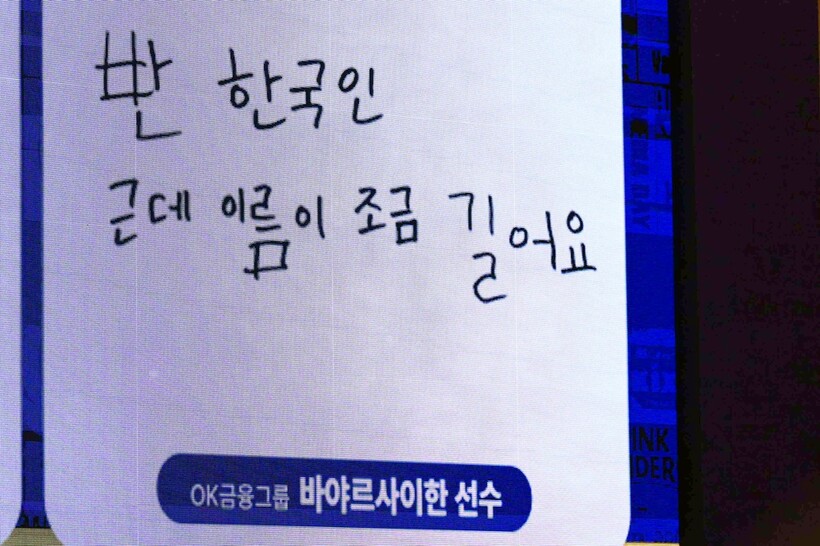 반 한국인
근데 이름이 조금 길어요
OK금융그룹 바야르사이한 선수
INK
DER